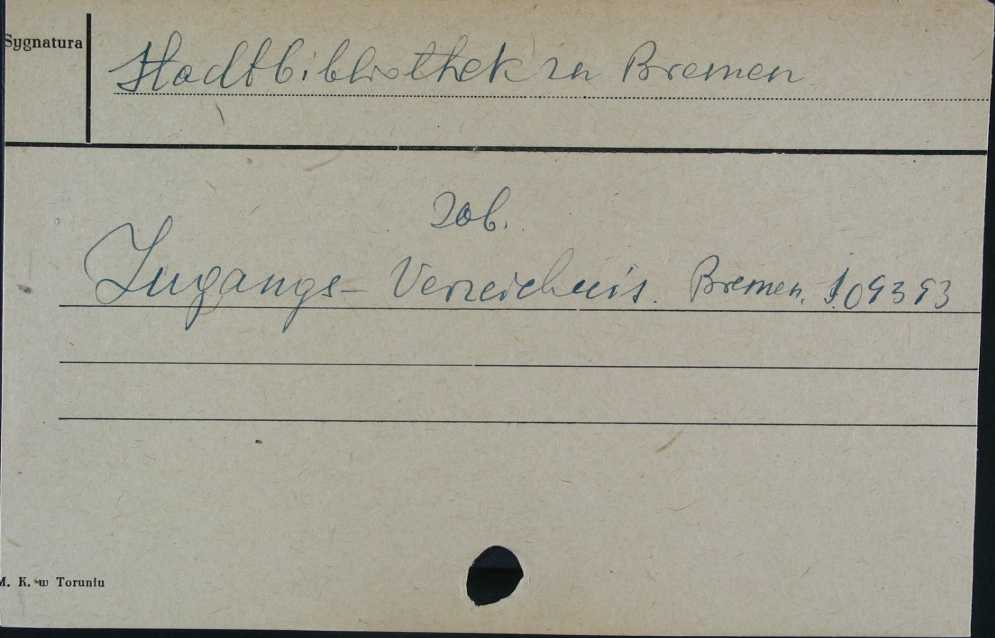 Sygnatura
Stadtbibliothek zu Bremen
Zob.
Zugangs-Verzeichnis. Bremen. 109393
M. K. w Toruniu